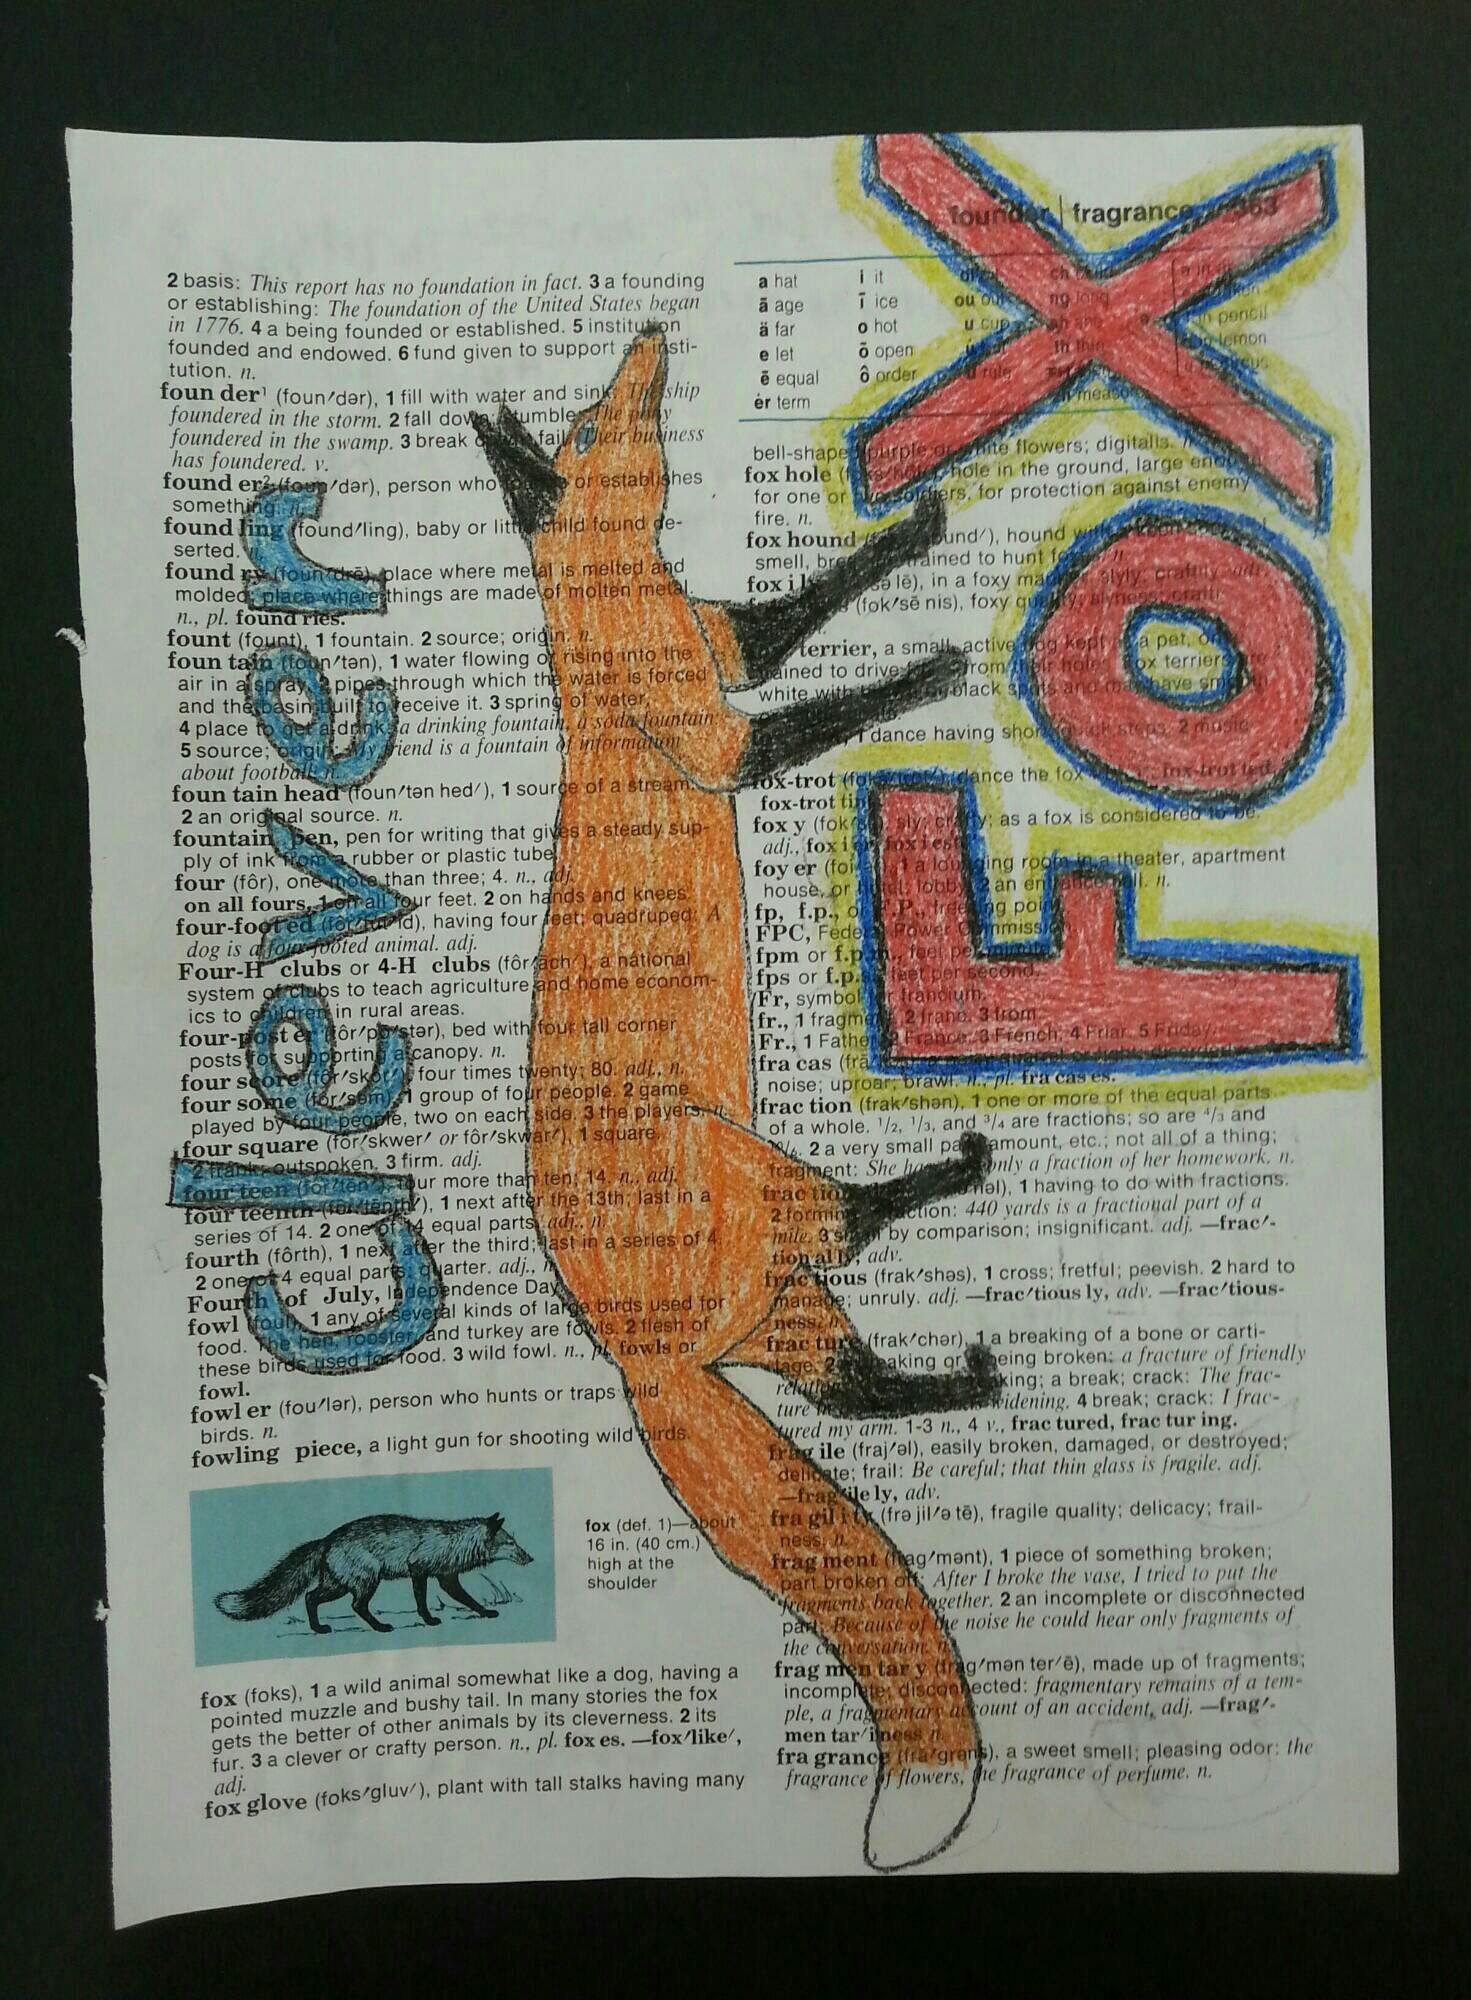 founder | fragrance 363
2 basis: This report has no foundation in fact. 3 a founding
or establishing: The foundation of the United States began
in 1776. 4 a being founded or established. 5 institution
founded and endowed. 6 fund given to support an insti-
tution. n.
foun der¹ (foun′dər), 1 fill with water and sink: The ship
foundered in the storm. 2 fall down; stumble: The pony
foundered in the swamp. 3 break down; fail: Their business
has foundered. v.
found er² (foun′dər), person who founds or establishes
something. n.
found ling (found′ling), baby or little child found de-
serted. n.
found ry (foun′drē), place where metal is melted and
molded; place where things are made of molten metal.
n., pl. found ries.
fount (fount), 1 fountain. 2 source; origin. n.
foun tain (foun′tən), 1 water flowing or rising into the
air in a spray. 2 pipes through which the water is forced
and the basin built to receive it. 3 spring of water.
4 place to get a drink: a drinking fountain, a soda fountain.
5 source; origin: My friend is a fountain of information
about football. n.
foun tain head (foun′tən hed′), 1 source of a stream.
2 an original source. n.
fountain pen, pen for writing that gives a steady sup-
ply of ink from a rubber or plastic tube.
four (fôr), one more than three; 4. n., adj.
on all fours, 1 on all four feet. 2 on hands and knees.
four-foot ed (fôr′fu̇t′id), having four feet; quadruped: A
dog is a four-footed animal. adj.
Four-H clubs or 4-H clubs (fôr′āch′), a national
system of clubs to teach agriculture and home econom-
ics to children in rural areas.
four-post er (fôr′pō′stər), bed with four tall corner
posts for supporting a canopy. n.
four score (fôr′skôr′), four times twenty; 80. adj., n.
four some (fôr′səm), 1 group of four people. 2 game
played by four people, two on each side. 3 the players. n.
four square (fôr′skwer′ or fôr′skwar′), 1 square.
2 frank; outspoken. 3 firm. adj.
four teen (fôr′tēn′), four more than ten; 14. n., adj.
four teenth (fôr′tēnth′), 1 next after the 13th; last in a
series of 14. 2 one of 14 equal parts. adj., n.
fourth (fôrth), 1 next after the third; last in a series of 4.
2 one of 4 equal parts; quarter. adj., n.
Fourth of July, Independence Day.
fowl (foul), 1 any of several kinds of large birds used for
food. The hen, rooster, and turkey are fowls. 2 flesh of
these birds used for food. 3 wild fowl. n., pl. fowls or
fowl.
fowl er (fou′lər), person who hunts or traps wild
birds. n.
fowling piece, a light gun for shooting wild birds.
fox (def. 1)—about
16 in. (40 cm.)
high at the
shoulder
fox (foks), 1 a wild animal somewhat like a dog, having a
pointed muzzle and bushy tail. In many stories the fox
gets the better of other animals by its cleverness. 2 its
fur. 3 a clever or crafty person. n., pl. fox es. —fox′like′,
adj.
fox glove (foks′gluv′), plant with tall stalks having many
a hat i it ch
ā age ī ice ou out ng long
ä far o hot u cup pencil
e let ō open th lemon
ē equal ô order ü rule
ėr term measure
bell-shaped purple or white flowers; digitalis. n.
fox hole (foks′hōl′), hole in the ground, large enough
for one or two soldiers, for protection against enemy
fire. n.
fox hound (found′), hound with a keen sense of
smell, bred and trained to hunt foxes. n.
fox i ly (sə lē), in a foxy manner; slyly; craftily. adv.
(fok′sē nis), foxy quality; slyness; craft.
n.
terrier, a small, active dog kept as a pet, once
trained to drive foxes from their holes. Fox terriers are
white with black spots and may have smooth
dance having short, quick steps. 2 music
fox-trot (foks′trot′), dance the fox fox-trot ted,
fox-trot ting.
fox y (fok′sē), sly; crafty; as a fox is considered to be.
adj., fox i er, fox i est.
foy er (foi′ər), 1 a lounging room in a theater, apartment
house, or hotel; lobby. 2 an entrance hall. n.
fp, f.p., or F.P., freezing point.
FPC, Federal Power Commission.
fpm or f.p.m., feet per minute.
fps or f.p.s., feet per second.
Fr, symbol for francium.
fr., 1 fragment. 2 franc. 3 from.
Fr., 1 Father. 2 France. 3 French. 4 Friar. 5 Friday.
fra cas (frā
noise; uproar; brawl. n., pl. fra cas es.
frac tion (frak′shən), 1 one or more of the equal parts
of a whole. 1/2, 1/3, and 3/4 are fractions; so are 4/3 and
10/6. 2 a very small part, amount, etc.; not all of a thing;
fragment: She has done only a fraction of her homework. n.
frac tion al 1 having to do with fractions.
2 forming a fraction: 440 yards is a fractional part of a
mile. 3 small by comparison; insignificant. adj. —frac′-
tion al ly, adv.
frac tious (frak′shəs), 1 cross; fretful; peevish. 2 hard to
manage; unruly. adj. —frac′tious ly, adv. —frac′tious-
ness, n.
frac ture (frak′chər), 1 a breaking of a bone or carti-
lage. 2 a breaking or being broken: a fracture of friendly
relations. breaking; a break; crack: The frac-
ture in widening. 4 break; crack: I frac-
tured my arm. 1-3 n., 4 v., frac tured, frac tur ing.
frag ile (fraj′əl), easily broken, damaged, or destroyed;
delicate; frail: Be careful; that thin glass is fragile. adj.
—frag′ile ly, adv.
fra gil i ty (frə jil′ə tē), fragile quality; delicacy; frail-
ness. n.
frag ment (frag′mənt), 1 piece of something broken;
part broken off: After I broke the vase, I tried to put the
fragments back together. 2 an incomplete or disconnected
part: Because of the noise he could hear only fragments of
the conversation. n.
frag men tar y (frag′mən ter′ē), made up of fragments;
incomplete; disconnected: fragmentary remains of a tem-
ple, a fragmentary account of an accident. adj. —frag′-
men tar′i ness, n.
fra grance (frā′grəns), a sweet smell; pleasing odor: the
fragrance of flowers, the fragrance of perfume. n.
FOX
Clever